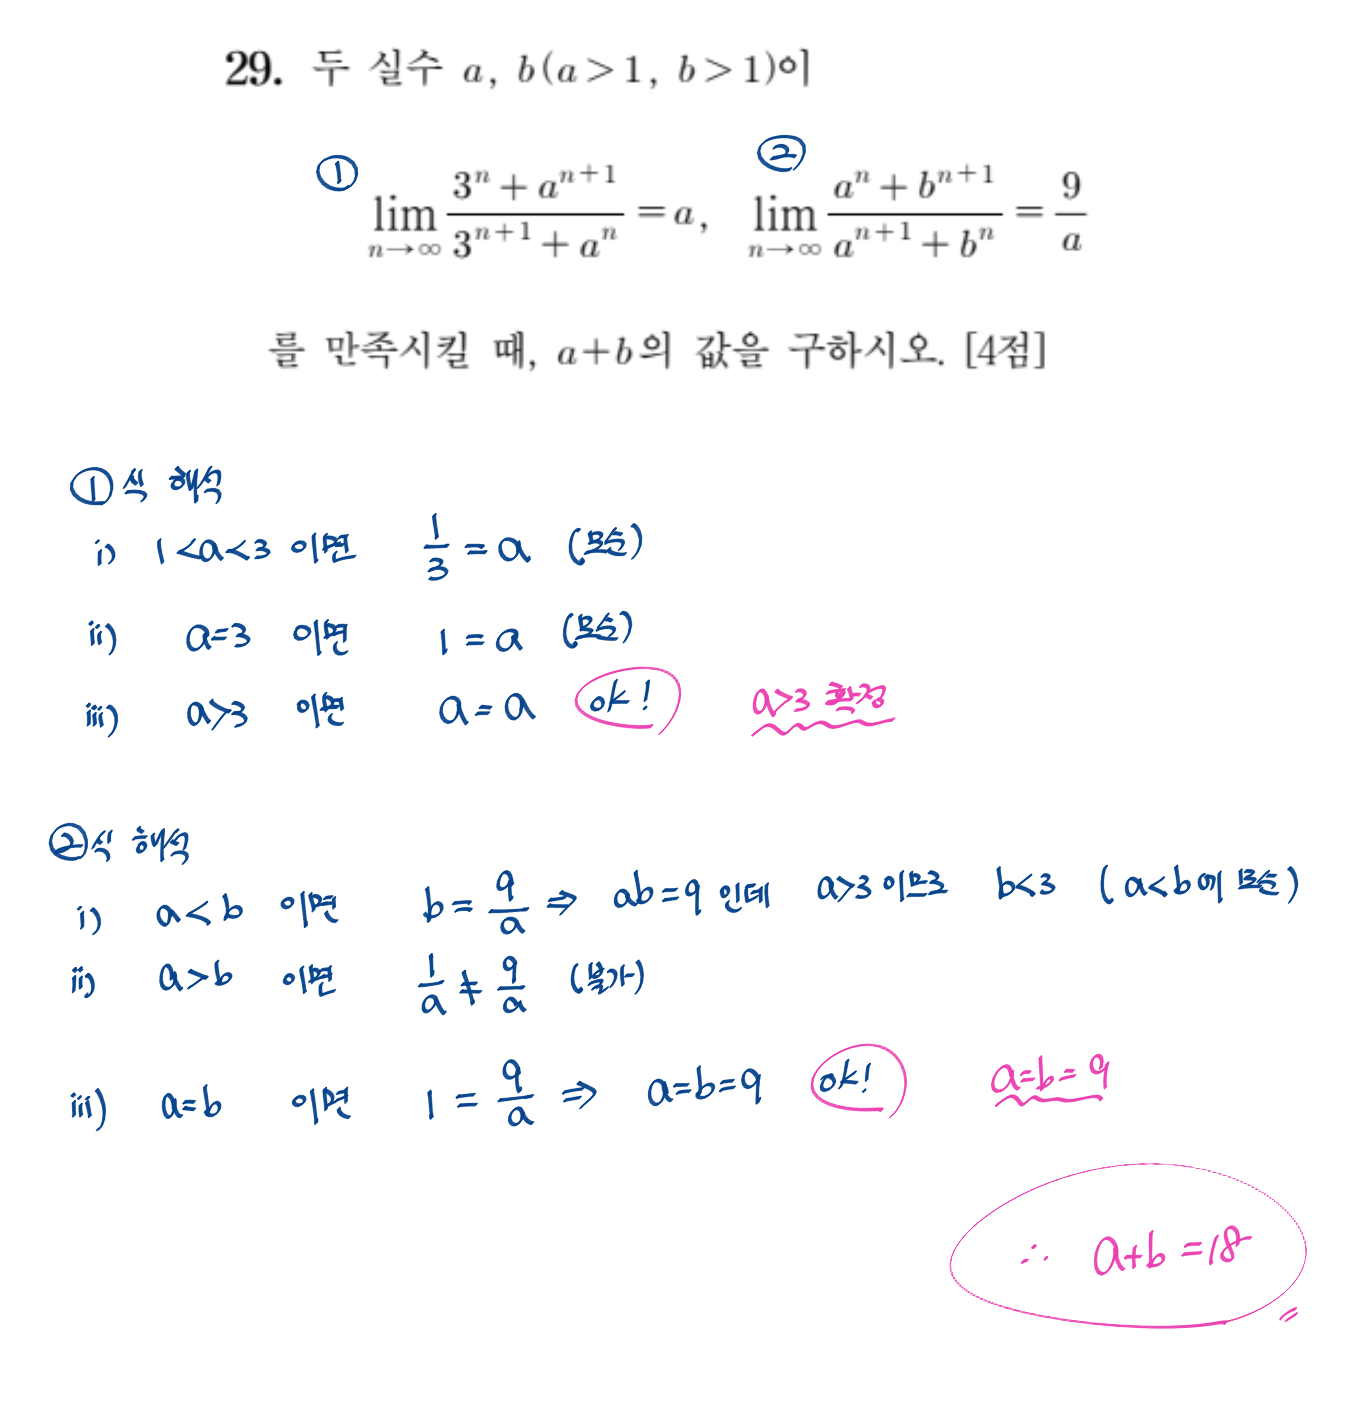 29. 두 실수 a, b(a>1, b>1)이
① lim_{n→∞} (3^n + a^{n+1})/(3^{n+1} + a^n) = a, ② lim_{n→∞} (a^n + b^{n+1})/(a^{n+1} + b^n) = 9/a
를 만족시킬 때, a+b의 값을 구하시오. [4점]
①식 해석
i) 1<a<3 이면 1/3 = a (모순)
ii) a=3 이면 1 = a (모순)
iii) a>3 이면 a = a ok! a>3 확정
②식 해석
i) a<b 이면 b = 9/a ⇒ ab=9 인데 a>3 이므로 b<3 (a<b에 모순)
ii) a>b 이면 1/a ≠ 9/a (불가)
iii) a=b 이면 1 = 9/a ⇒ a=b=9 ok! a=b=9
∴ a+b=18